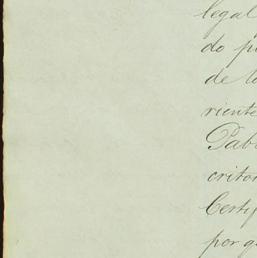 legal
do p
de l
riente
Pab
critor
Certif
por q